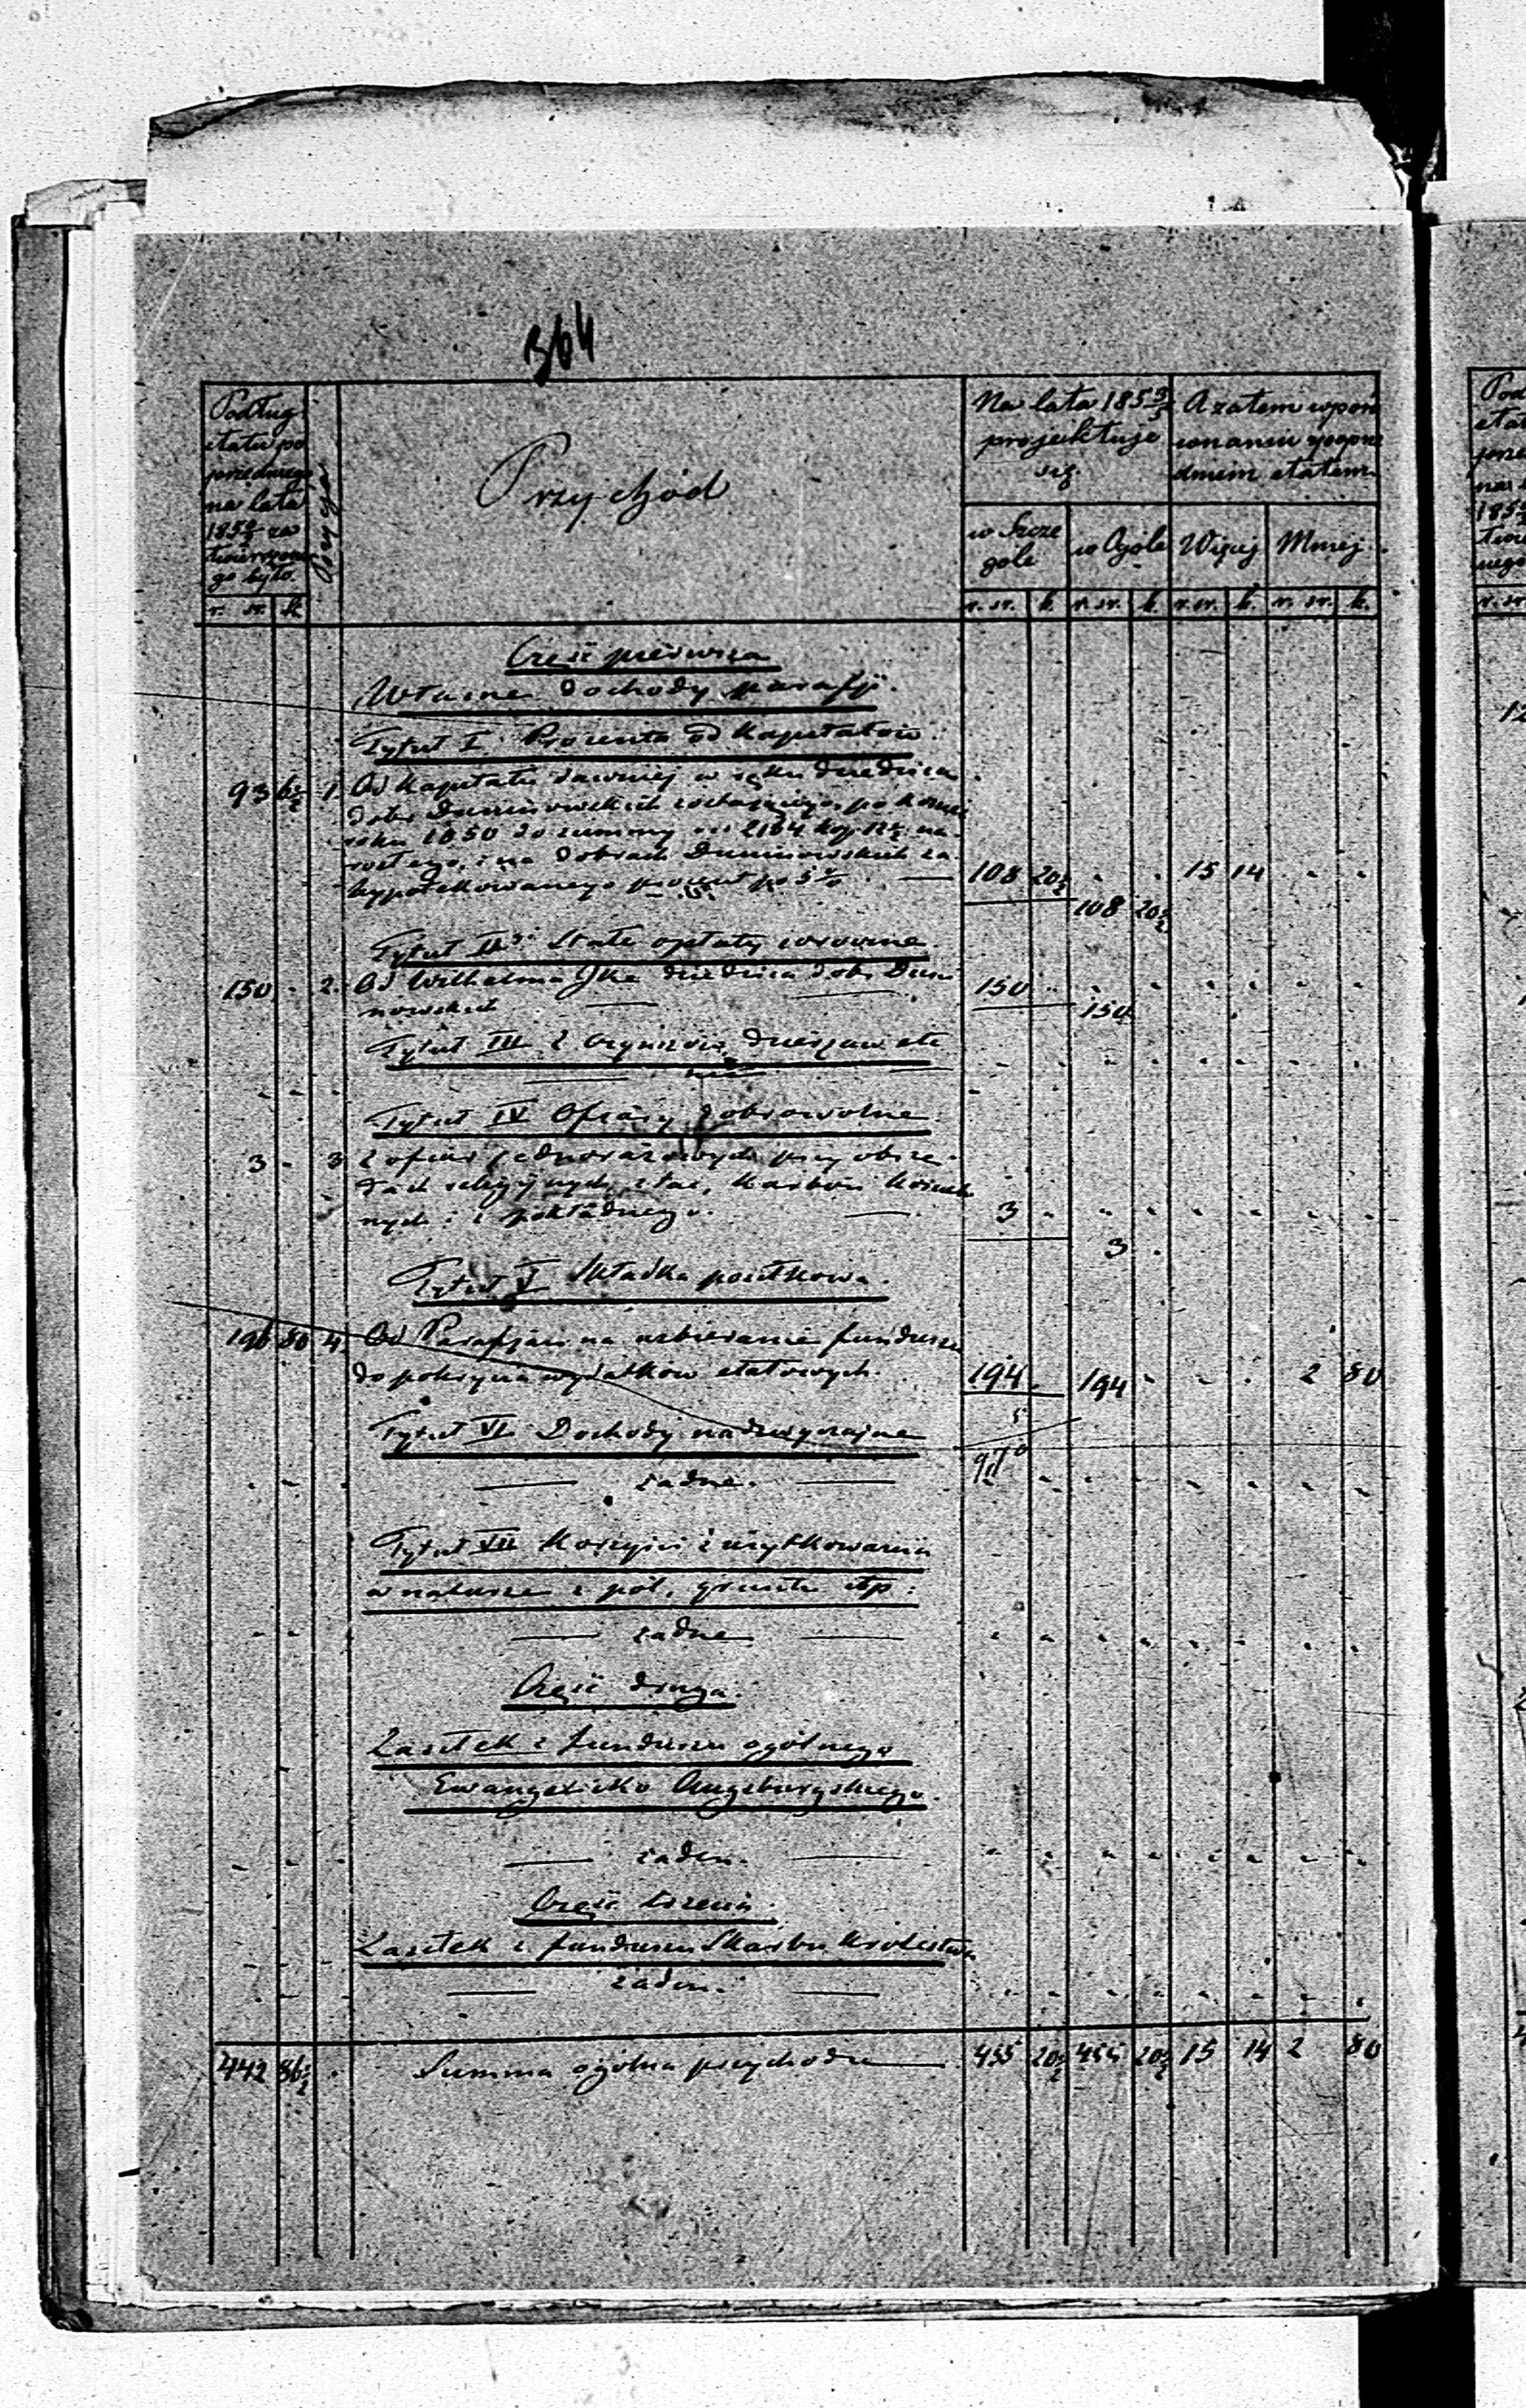 364
Podług
etatu po
przedniego
na lata
185 za
twierdzone
go było.
r. sr. k.
Pozycya
Przychód
Na lata 185
projektuje
się
w Szcze
góle
w Ogóle
r. sr. k. r. sr. k.
A zatem w porów
naniu z poprze
dniem etatem
Więcej
Mniej
r. sr. k. r. sr. k.
Część pierwsza
Własne dochody parafji.
Tytuł I. Procenta od Kapitałów.
93 6½ 1. Od Kapitału dawniej w ręku dziedzica
dóbr Duninowskich zostającego, po koniec
roku 1850 do summy rsr 2164 kop. 12½ na
rosłego, i na dobrach Duninowskich za
hypotekowanego procent po 5% 108 20½ 15 14
108 20½
Tytuł II. Stałe opłaty coroczne.
150 - 2. Od Wilhelma Ike dziedzica dóbr Duni
nowskich 150
150
Tytuł III Z Czynszów, dzierżaw etc
nic
Tytuł IV Ofiary dobrowolne
3 - 3 Z ofiar jednorazowych przy obrzę
dach religijnych, z tac, Karbon Kościel
nych i z pokładnego. 3
3
Tytuł V Składka posiłkowa.
196 80 4. Od Parafjan na uzbieranie funduszu
do pokrycia wydatków etatowych. 194 194 2 80
Tytuł VI Dochody nadzwyczajne
970
żadne.
Tytuł VII Korzyści z użytkowania
w naturze z pól, gruntu itp:
żadne
Część druga.
Zasiłek z funduszu ogólnego
Ewangelicko Augsburgskiego.
żaden.
Część trzecia.
Zasiłek z funduszu Skarbu Królestwa
żaden.
442 86½ Summa ogólna przychodu 455 20½ 455 20½ 15 14 2 80